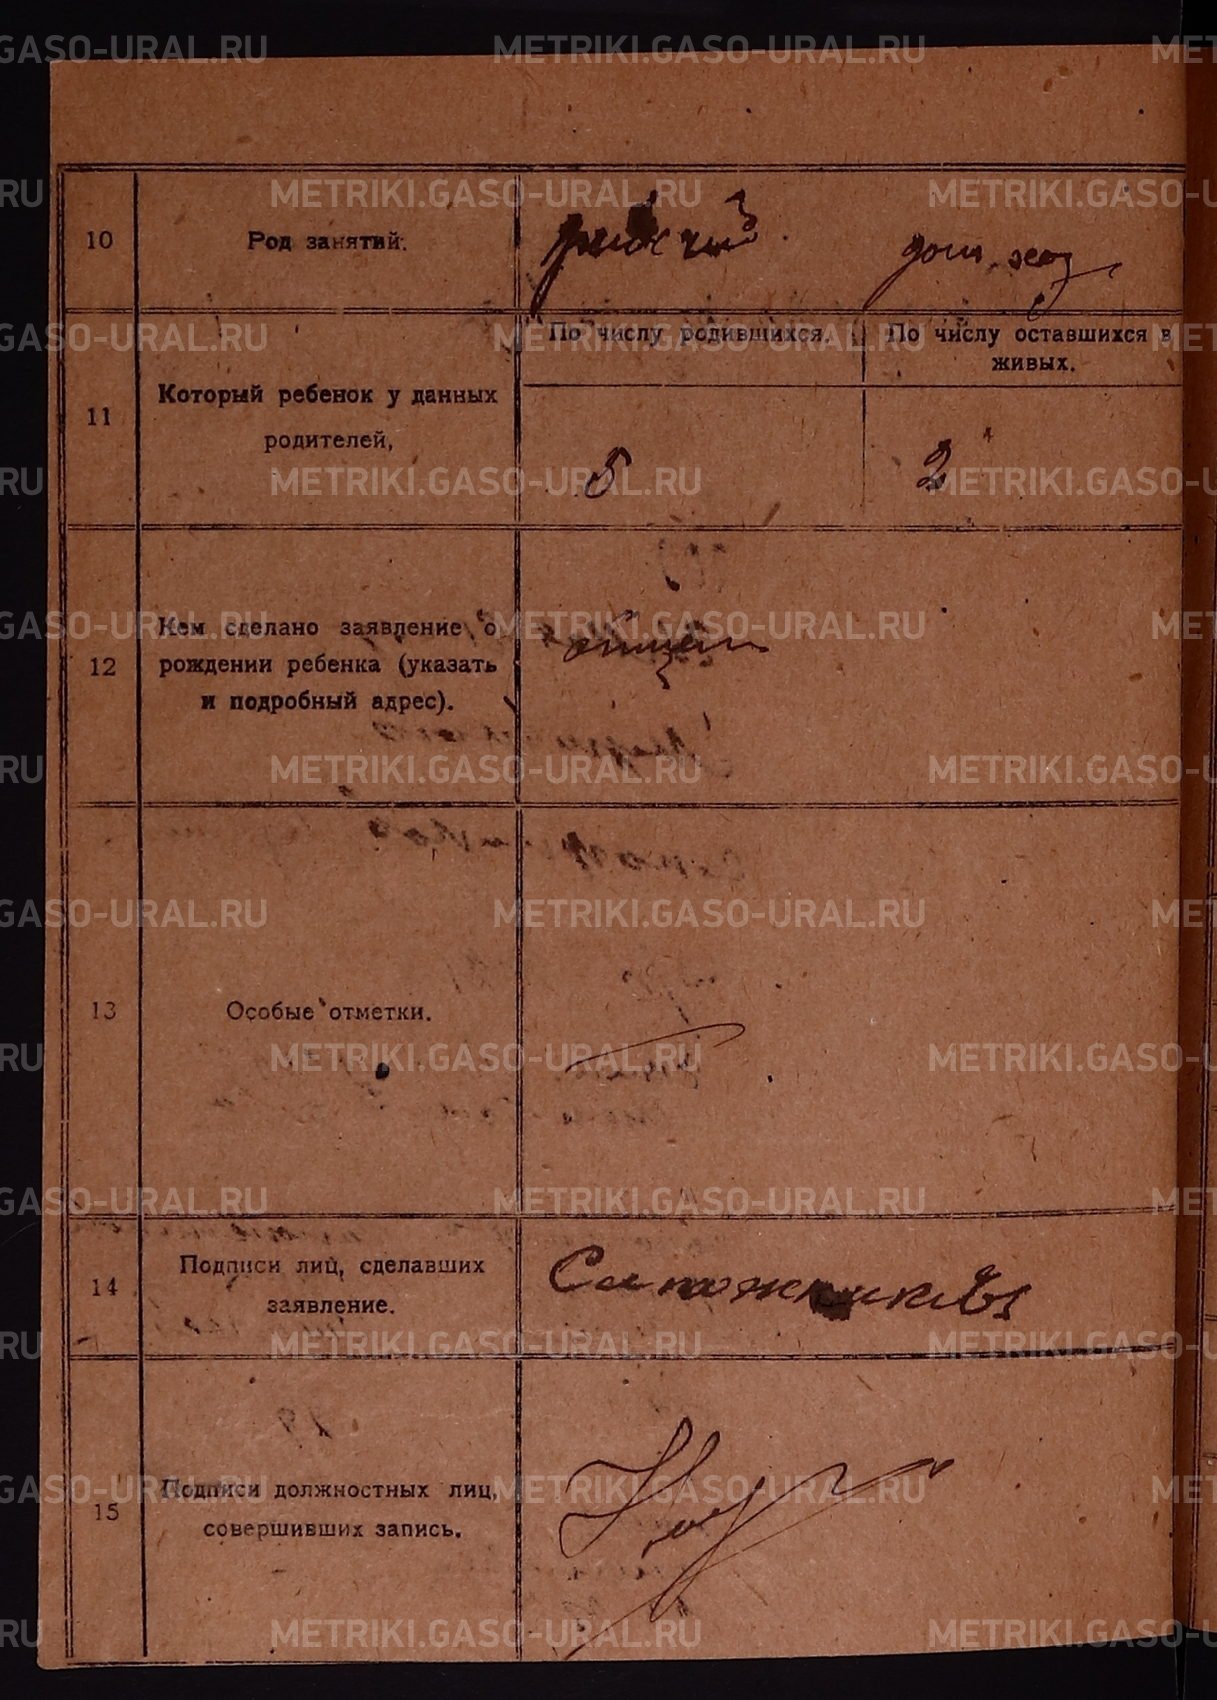 10 Род занятий. рабочий дом. хоз
11 Который ребенок у данных родителей,
По числу родившихся.
По числу оставшихся в живых.
5 2
12 Кем сделано заявление о
рождении ребенка (указать
и подробный адрес).
отцом
13 Особые отметки.
14 Подписи лиц, сделавших
заявление.
Сапожников
15 Подписи должностных лиц,
совершивших запись.
METRIKI.GASO-URAL.RU